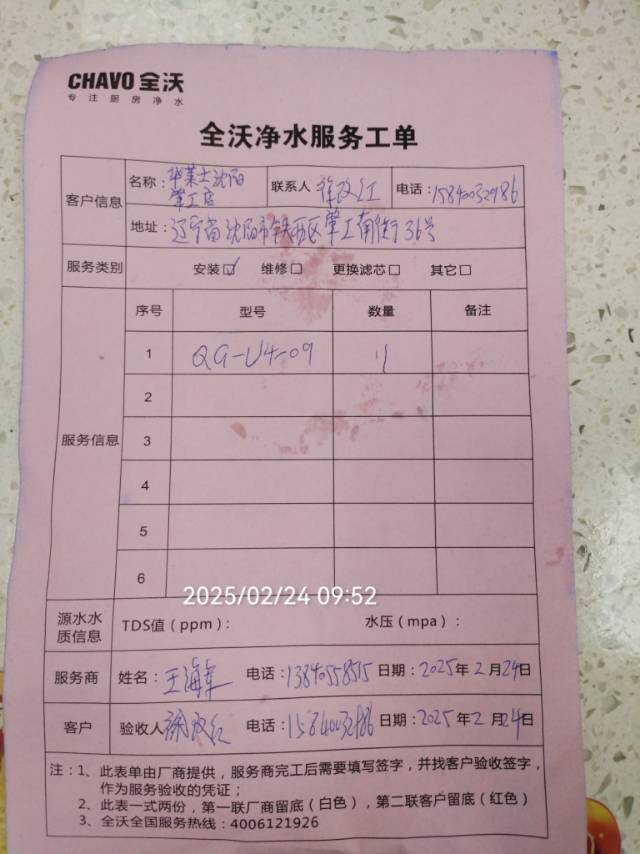 CHAVO 全沃
专注厨房净水
全沃净水服务工单
客户信息
名称：华莱士沈阳
肇工店
联系人
电话：
地址：辽宁省沈阳市铁西区肇工南街36号
服务类别 安装☑ 维修□ 更换滤芯□ 其它□
服务信息
序号 型号 数量 备注
1 QG-U4-09
2
3
4
5
6
2025/02/24 09:52
源水水
质信息
TDS值（ppm）： 水压（mpa）：
服务商 姓名：王海军 电话：13840558515 日期：2025年2月24日
客户 验收人 电话： 日期：2025年2月24日
注：1、此表单由厂商提供，服务商完工后需要填写签字，并找客户验收签字，
作为服务验收的凭证；
2、此表一式两份，第一联厂商留底（白色），第二联客户留底（红色）
3、全沃全国服务热线：4006121926